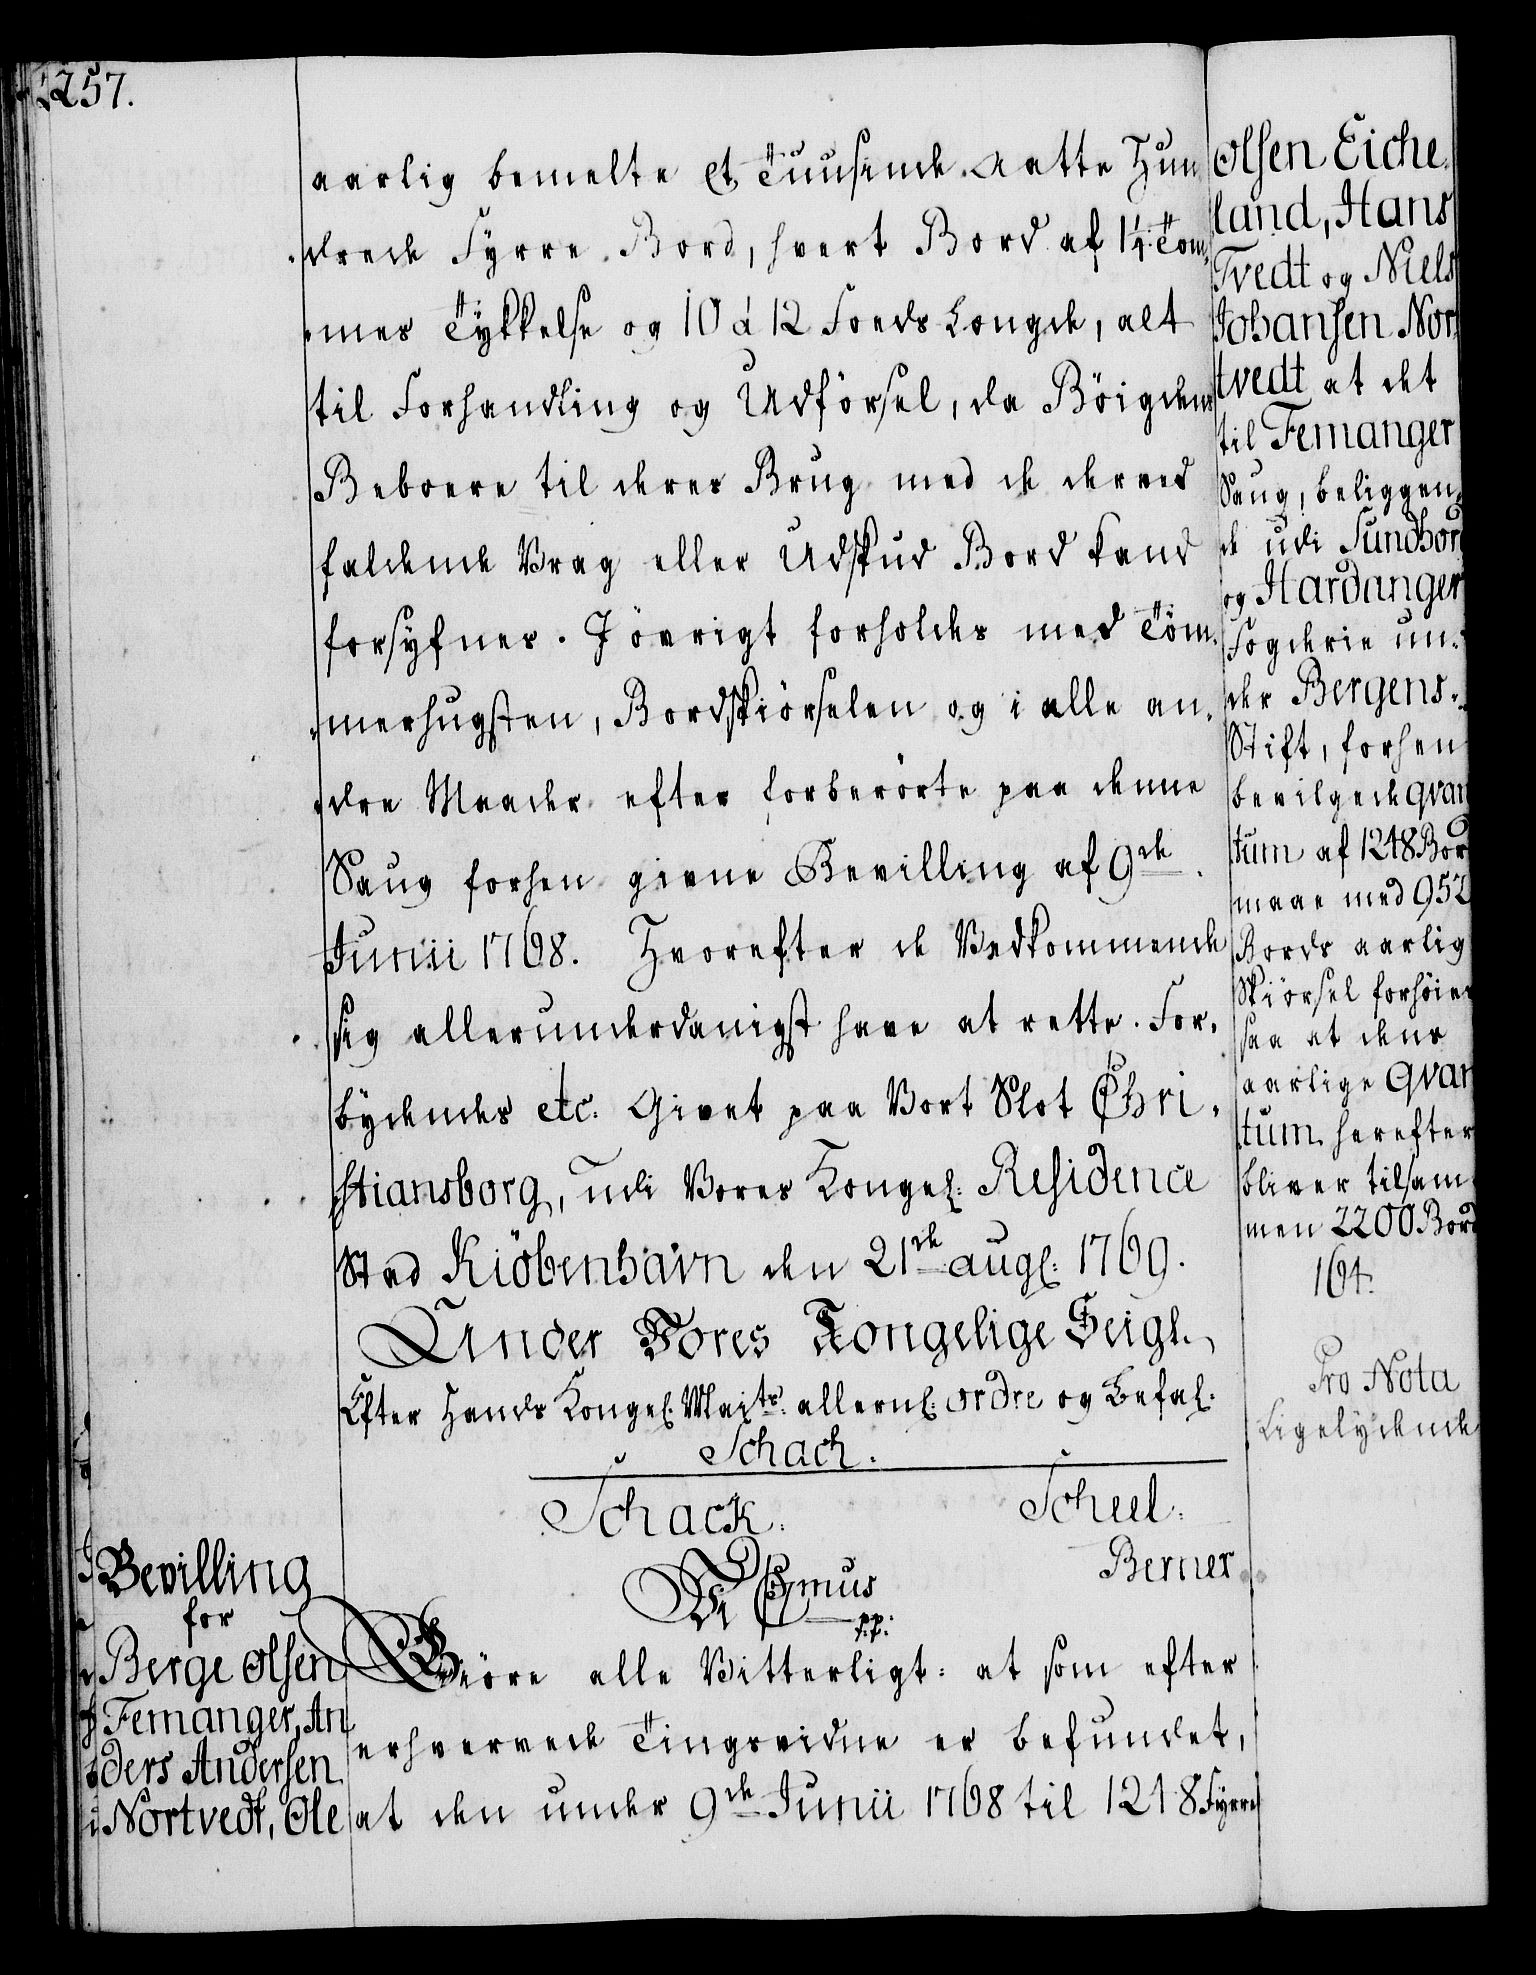 1257.
aarlig bemelte Et Tuusende Aatte Hun
drede Fyrre Bord, hvert Bord af 1¼ Tom-
mes Tykkelse og 10 à 12 Foeds Længde, alt
til Forhandling og Udförsel, da Böigdens
Beboere til deres Brug med de derved
faldende Vrag eller Udskud Bord kand
forsÿnes. I övrigt forholdes med Töm-
merhugsten, Bordskiörselen og i alle an-
dre Maader efter forberörte paa denne
Saug forhen givne Bevilling af 9de
Junii 1768. Hvorefter de Vedkommende
sig allerunderdanigst have at rette. For-
bydendes etc. Givet paa Vort Slot Chri-
stiansborg, udi Vores Kongel: Residence
Stad Kiöbenhavn den 21de Aug: 1769.
Under Vores Kongelige Seigl.
Efter Hands Kongel: Maits: allern: ordre og Befal:
Schack.
Schack. Scheel.
Berner
Bevilling
for
Berge Olsen
Femanger, An
ders Andersen
Nortvedt, Ole
Vi C 7mus
p.p:
Giöre alle Vitterligt: at som efter
erhvervede Tingsvidne er befundet,
at den under 9de Junii 1768 til 1248 Fyrre
Olsen Eiche-
land, Hans
Tvedt og Niels
Johansen Nor
tvedt at det
til Femanger
Saug, beliggen-
de udi Sundhor
og Hardanger
Fogderie un-
der Bergens
Stift, forhen
bevilgede qvan
tum af 1248 Bord
maae med 952
Bords aarlig
Skiörsel forhöies
saa at dens
aarlige Qvan
tum herefter
bliver tilsam
men 2200 Bord
164.
Pro Nota
Ligelydende